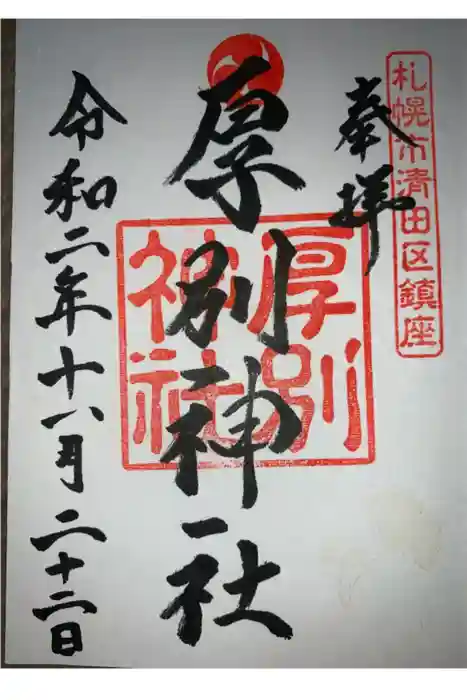 札幌市清田区鎮座
奉拝
厚別神社
厚別
神社
令和二年十八月二十二日